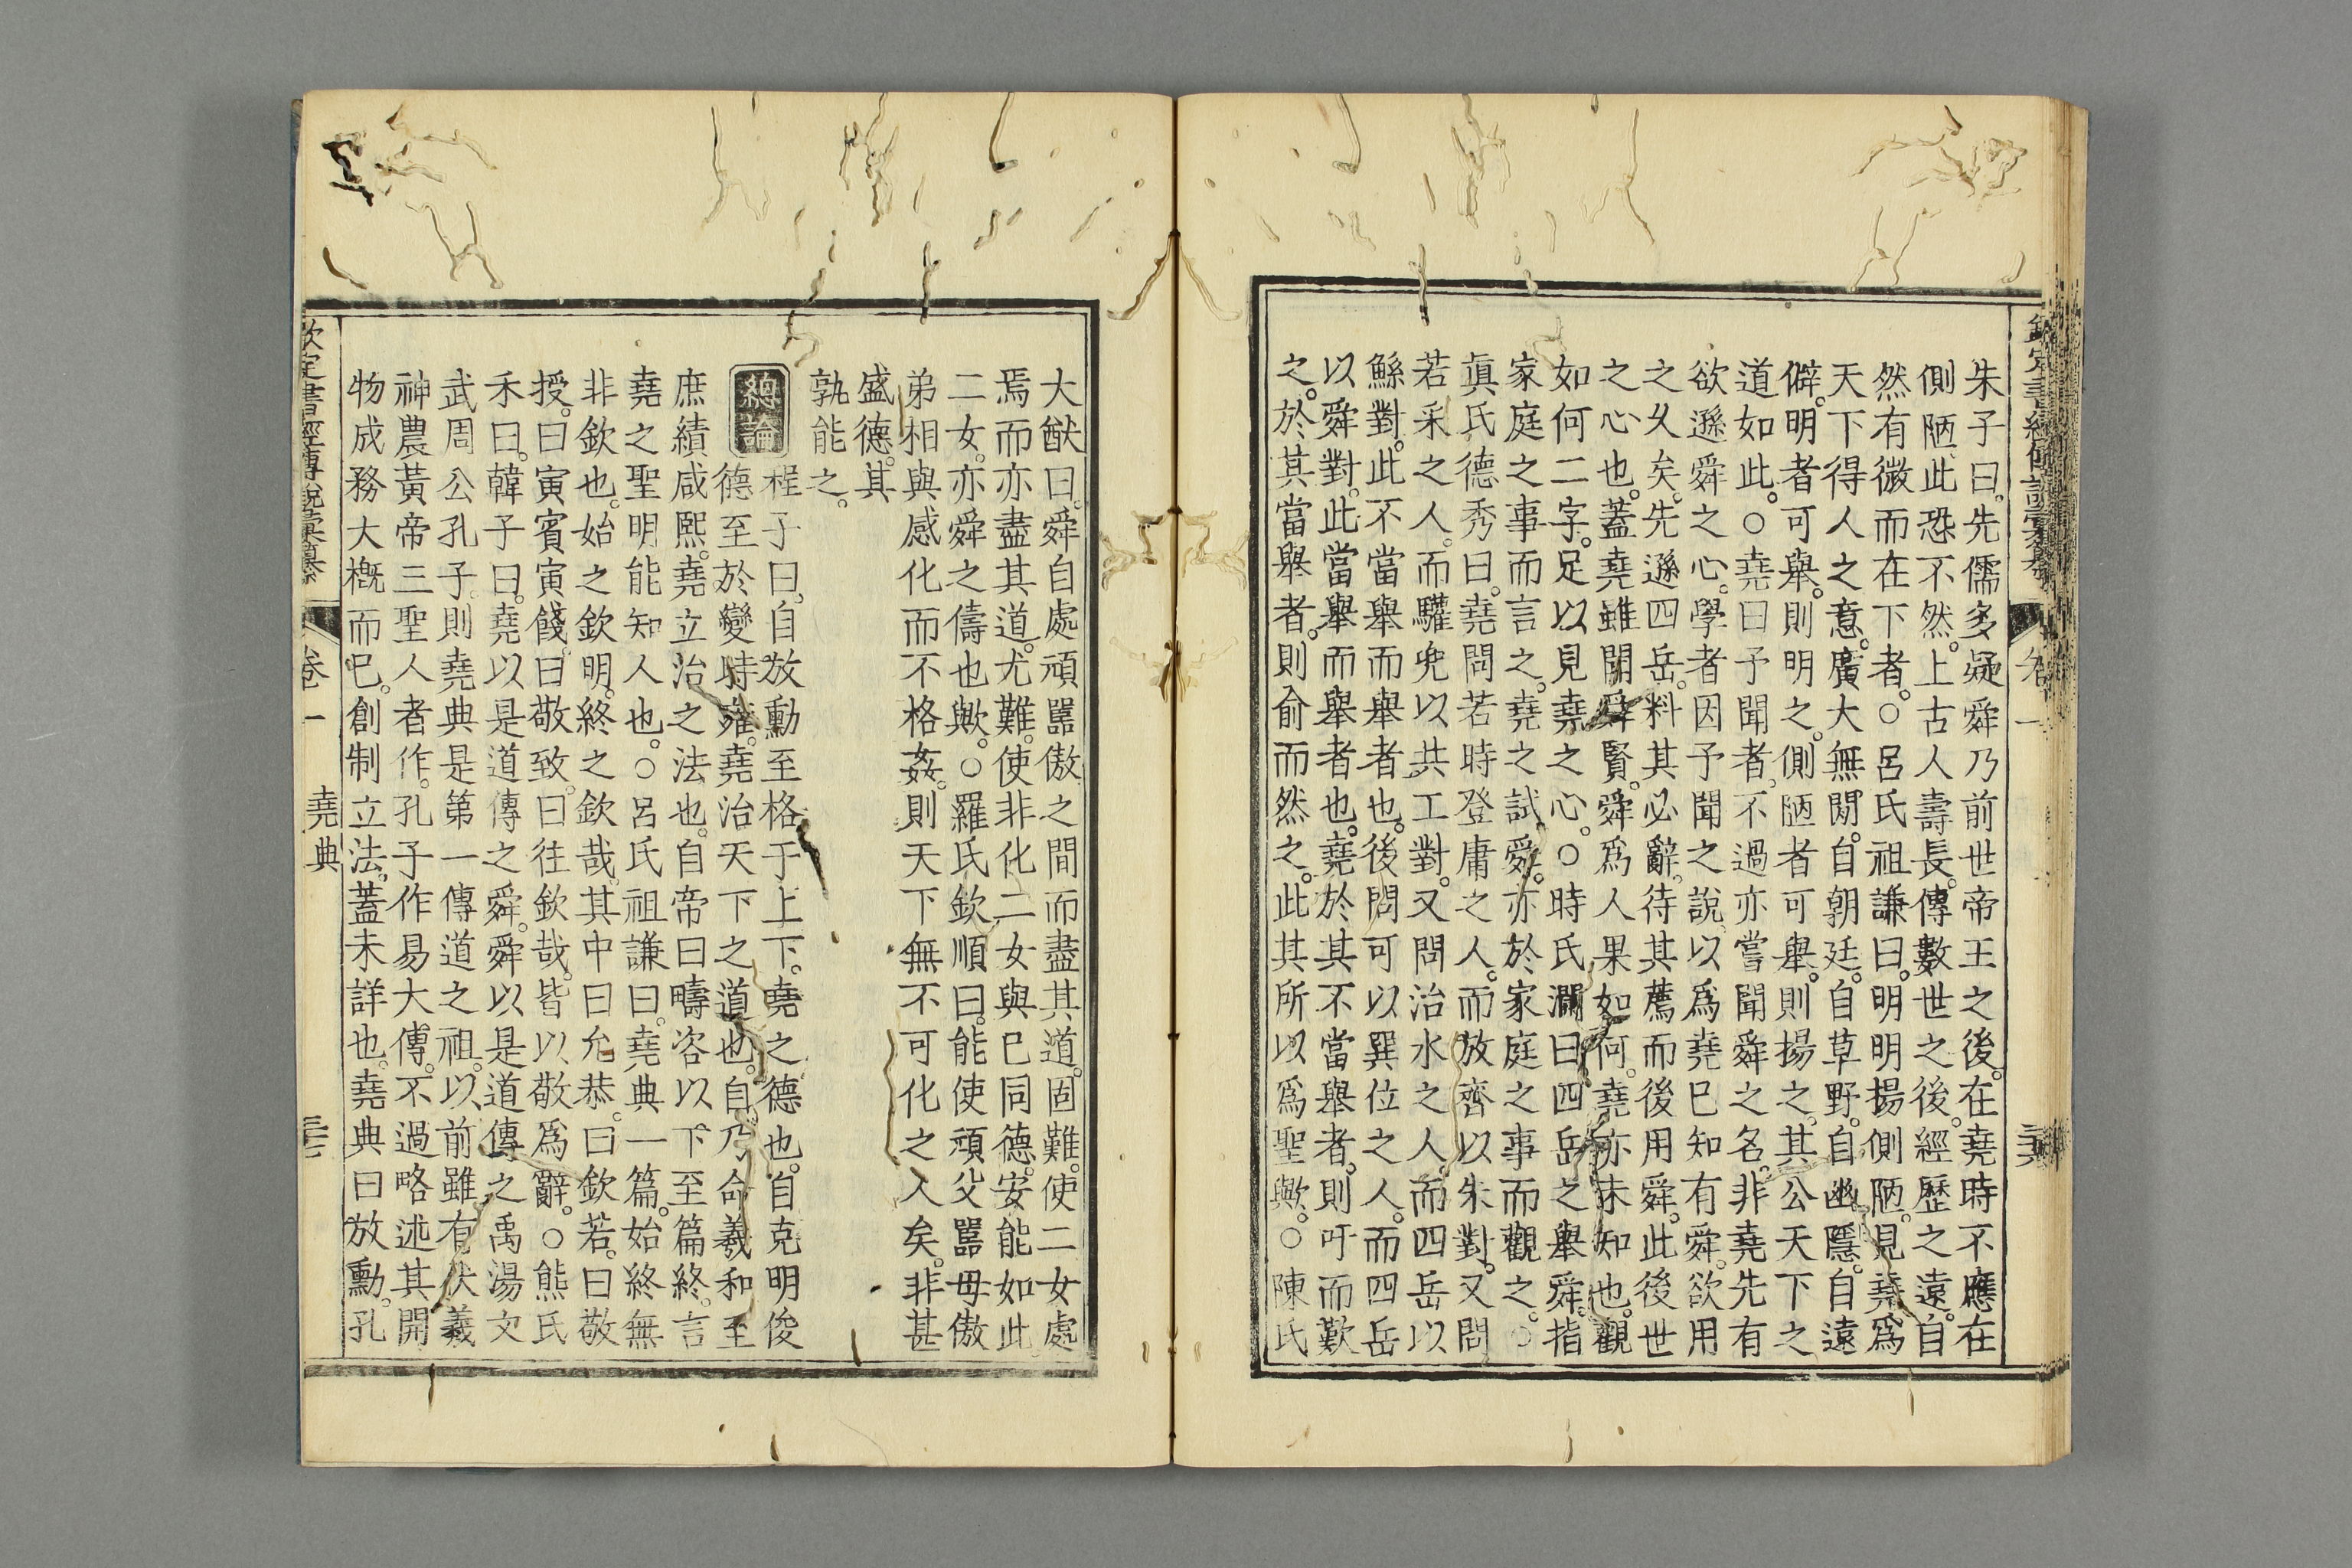 朱子曰。先儒多疑舜乃前世帝王之後。在堯時不應在
側陋。此恐不然。上古人壽長。傳數世之後。經歷之遠。自
然有微而在下者。○呂氏祖謙曰。明明揚側陋。見堯爲
天下得人之意。廣大無閒。自朝廷。自草野。自幽隱。自遠
僻。明者可舉。則明之。側陋者可舉。則揚之。其公天下之
道如此。○堯曰予聞者。不過亦嘗聞舜之名。非堯先有
欲遜舜之心。學者因予聞之說。以爲堯已知有舜。欲用
之久矣。先遜四岳。料其必辭。待其薦而後用舜。此後世
之心也。蓋堯雖聞舜賢。舜爲人果如何。堯亦未知也。觀
如何二字。足以見堯之心。○時氏瀾曰四岳之舉舜。指
家庭之事而言之。堯之試舜。亦於家庭之事而觀之。○
眞氏德秀曰。堯問若時登庸之人。而放齊以朱對。又問
若采之人。而驩兜以共工對。又問治水之人。而四岳以
鯀對。此不當舉而舉者也。後問可以巽位之人。而四岳
以舜對。此當舉而舉者也。堯於其不當舉者。則吁而歎
之。於其當舉者。則俞而然之。此其所以爲聖歟。○陳氏
卷一
大猷曰。舜自處頑嚚傲之間而盡其道。固難。使二女處
焉而亦盡其道。尤難。使非化二女與已同德。安能如此。
二女。亦舜之儔也歟。○羅氏欽順曰。能使頑父嚚母傲
弟相與感化而不格姦。則天下無不可化之入矣。非甚
盛德。其
孰能之。
總論
程子曰。自放勳至格于上下。堯之德也。自克明俊
德至於變時雍。堯治天下之道也。自乃命羲和至
庶績咸熙。堯立治之法也。自帝曰疇咨以下至篇終。言
堯之聖明能知人也。○呂氏祖謙曰。堯典一篇。始終無
非欽也。始之欽明。終之欽哉。其中曰允恭。曰欽若。曰敬
授。曰寅賓寅餞。曰敬致。曰往欽哉。皆以敬爲辭。○熊氏
禾曰。韓子曰。堯以是道傳之舜。舜以是道傳之禹湯文
武周公孔子。則堯典是第一傳道之祖。以前雖有伏羲
神農黃帝三聖人者作。孔子作易大傳。不過略述其開
物成務大槪而已。創制立法。蓋未詳也。堯典曰放勳。孔
欽定書經傳說彙纂
卷一
堯典